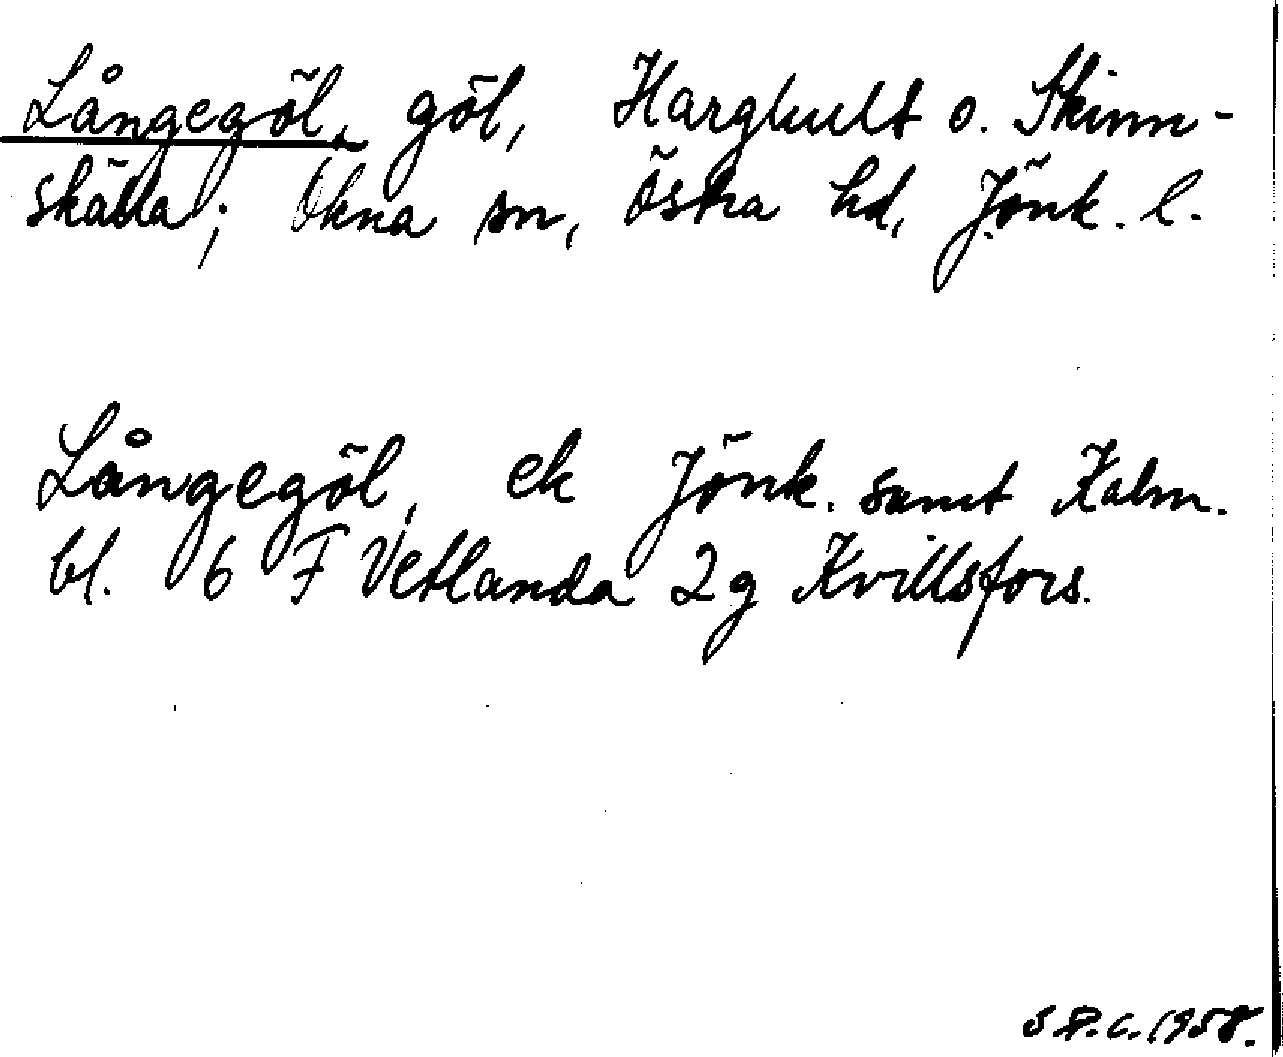 Långegöl, göl, Harghult o. Skinn-
skälla; Ökna sn, östra hd, Jönk. l.
Långegöl, ek Jönk. samt Kalm.
bl. 6 F Vetlanda 2g Kvillsfors.
S.P.C. 1958.